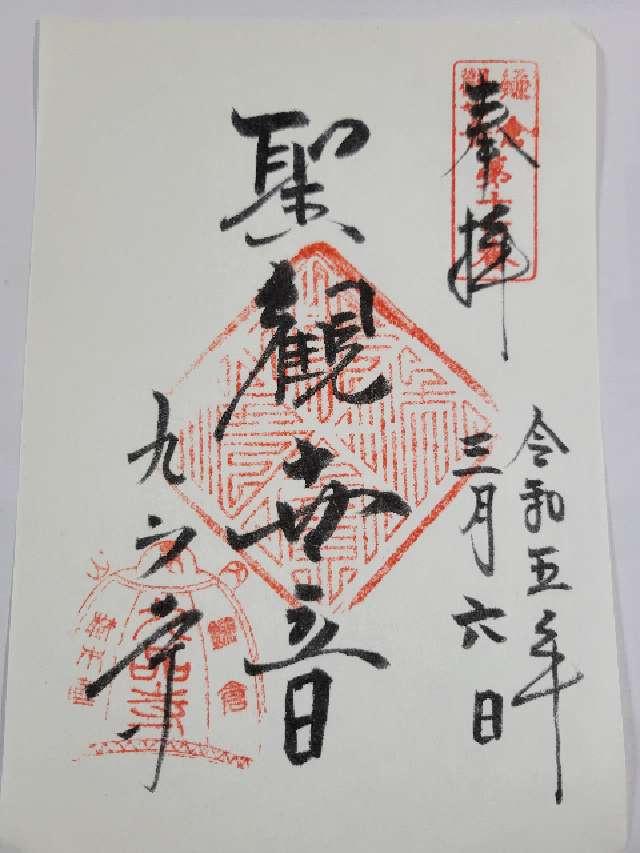 奉拝
令和五年
三月六日
聖観世音
九品寺
鎌倉